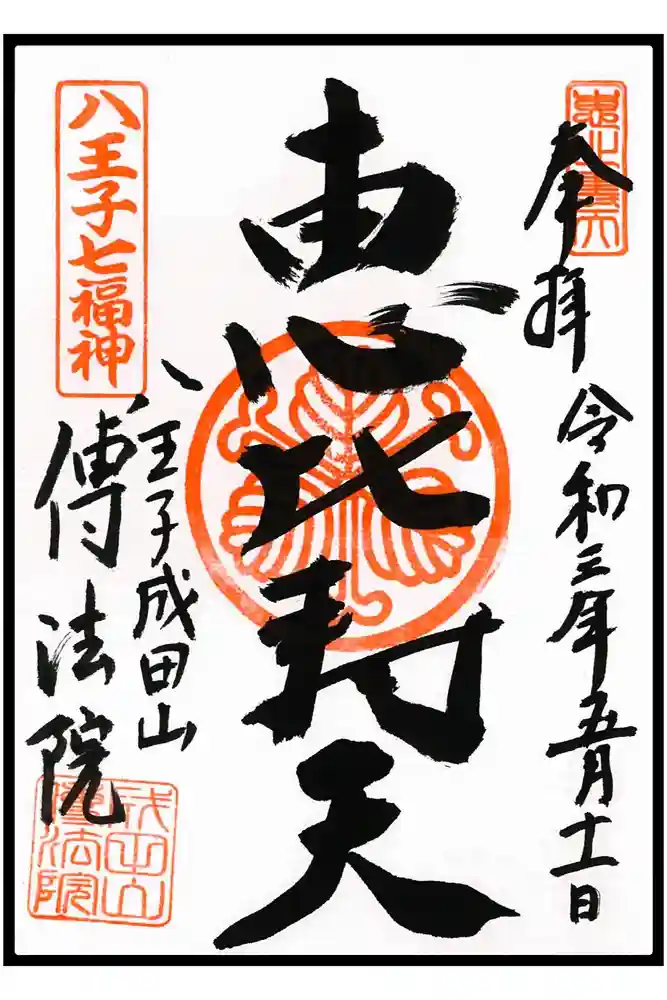 奉拝 令和三年五月十一日
恵比寿天
八王子七福神
八王子成田山
傳法院
成田山
傳法院